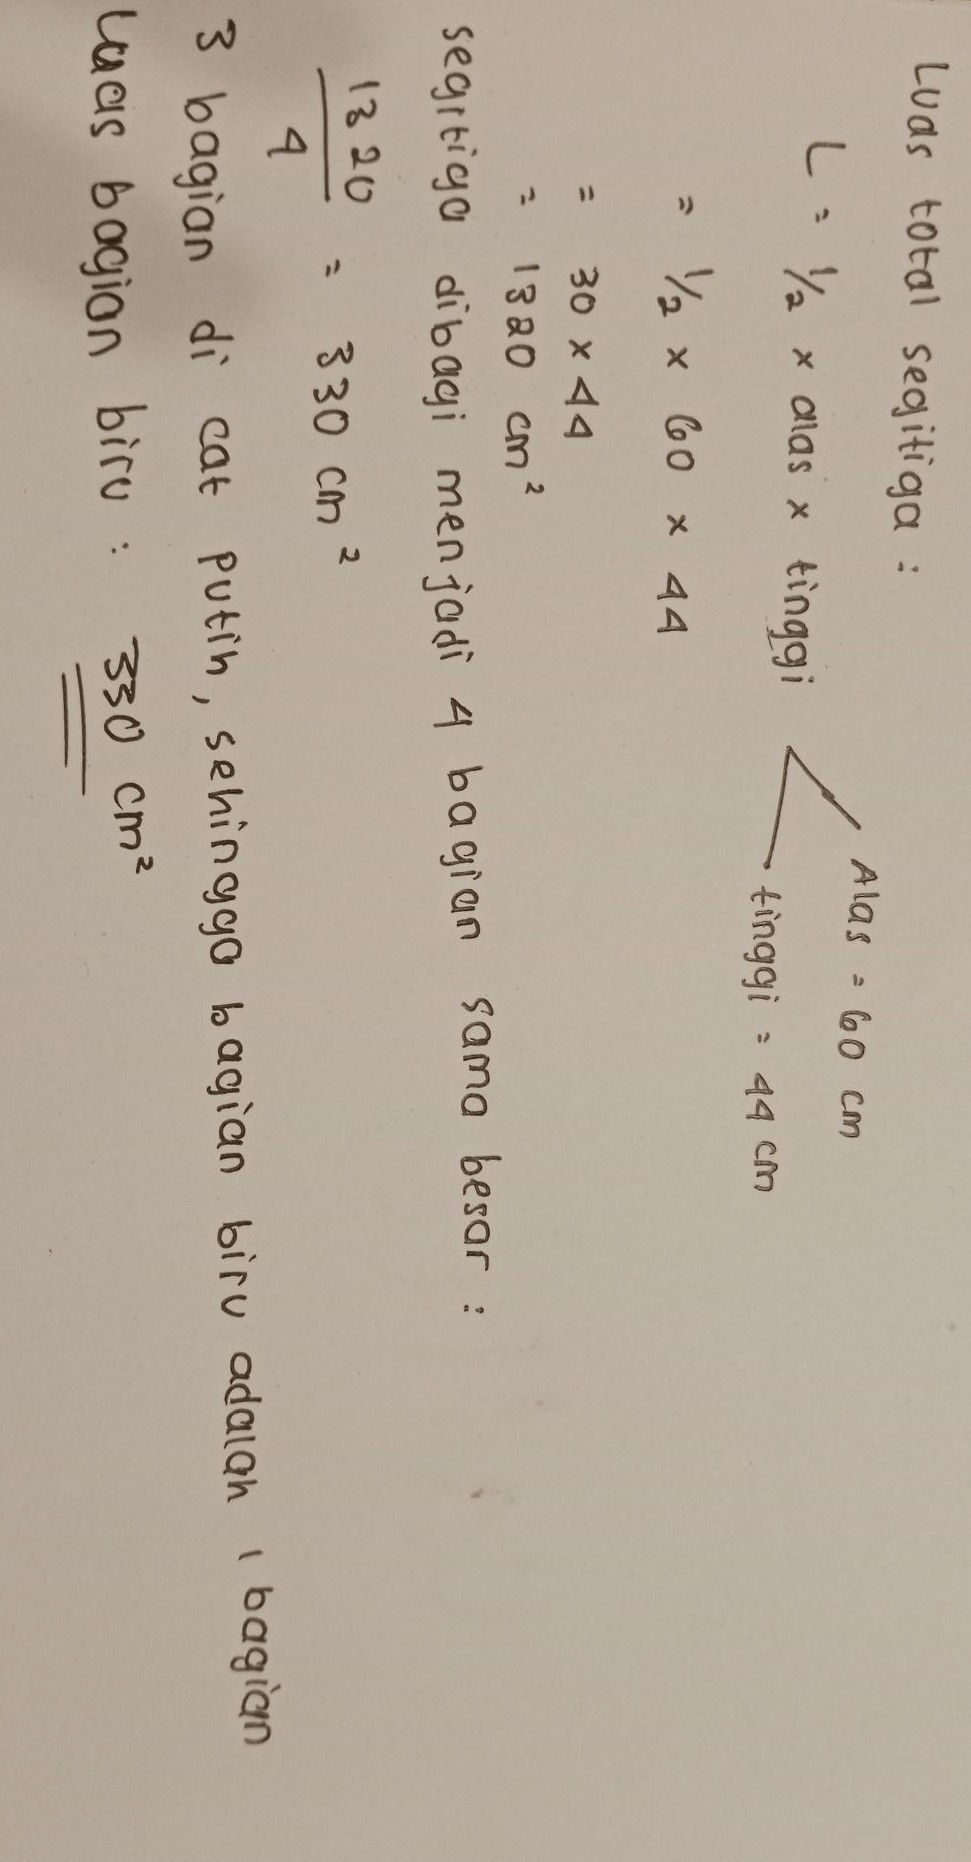 Luas total segitiga :
L = 1/2 x alas x tinggi
Alas = 60 cm
tinggi = 44 cm
= 1/2 x 60 x 44
= 30 x 44
= 1320 cm²
segitiga dibagi menjadi 4 bagian sama besar :
1320/4 = 330 cm²
3 bagian di cat putih, sehingga bagian biru adalah 1 bagian
Luas bagian biru : 330 cm²